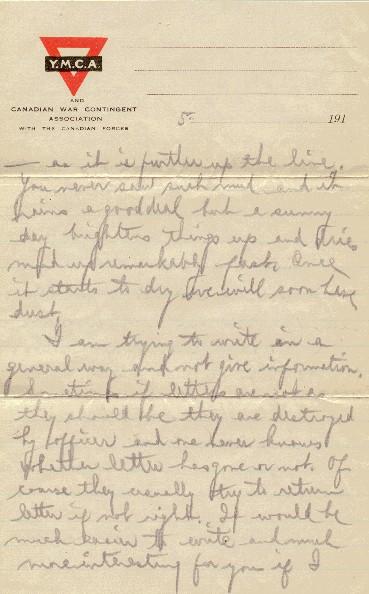 Y.M.C.A.
AND
CANADIAN WAR CONTINGENT
ASSOCIATION
WITH THE CANADIAN FORCES
5
191
— as it is further up the line.
You never saw such mud and it
rains a good deal but a sunny
day brightens things up and dries
mud up remarkably fast. Once
it starts to dry we will soon have
dust.
I am trying to write in a
general way and not give information.
Sometimes if letters are not as
they should be they are destroyed
by officer and one never knows
whether letter has gone or not. Of
course they usually try to return
letter if not right. It would be
much easier to write and much
more interesting for you if I